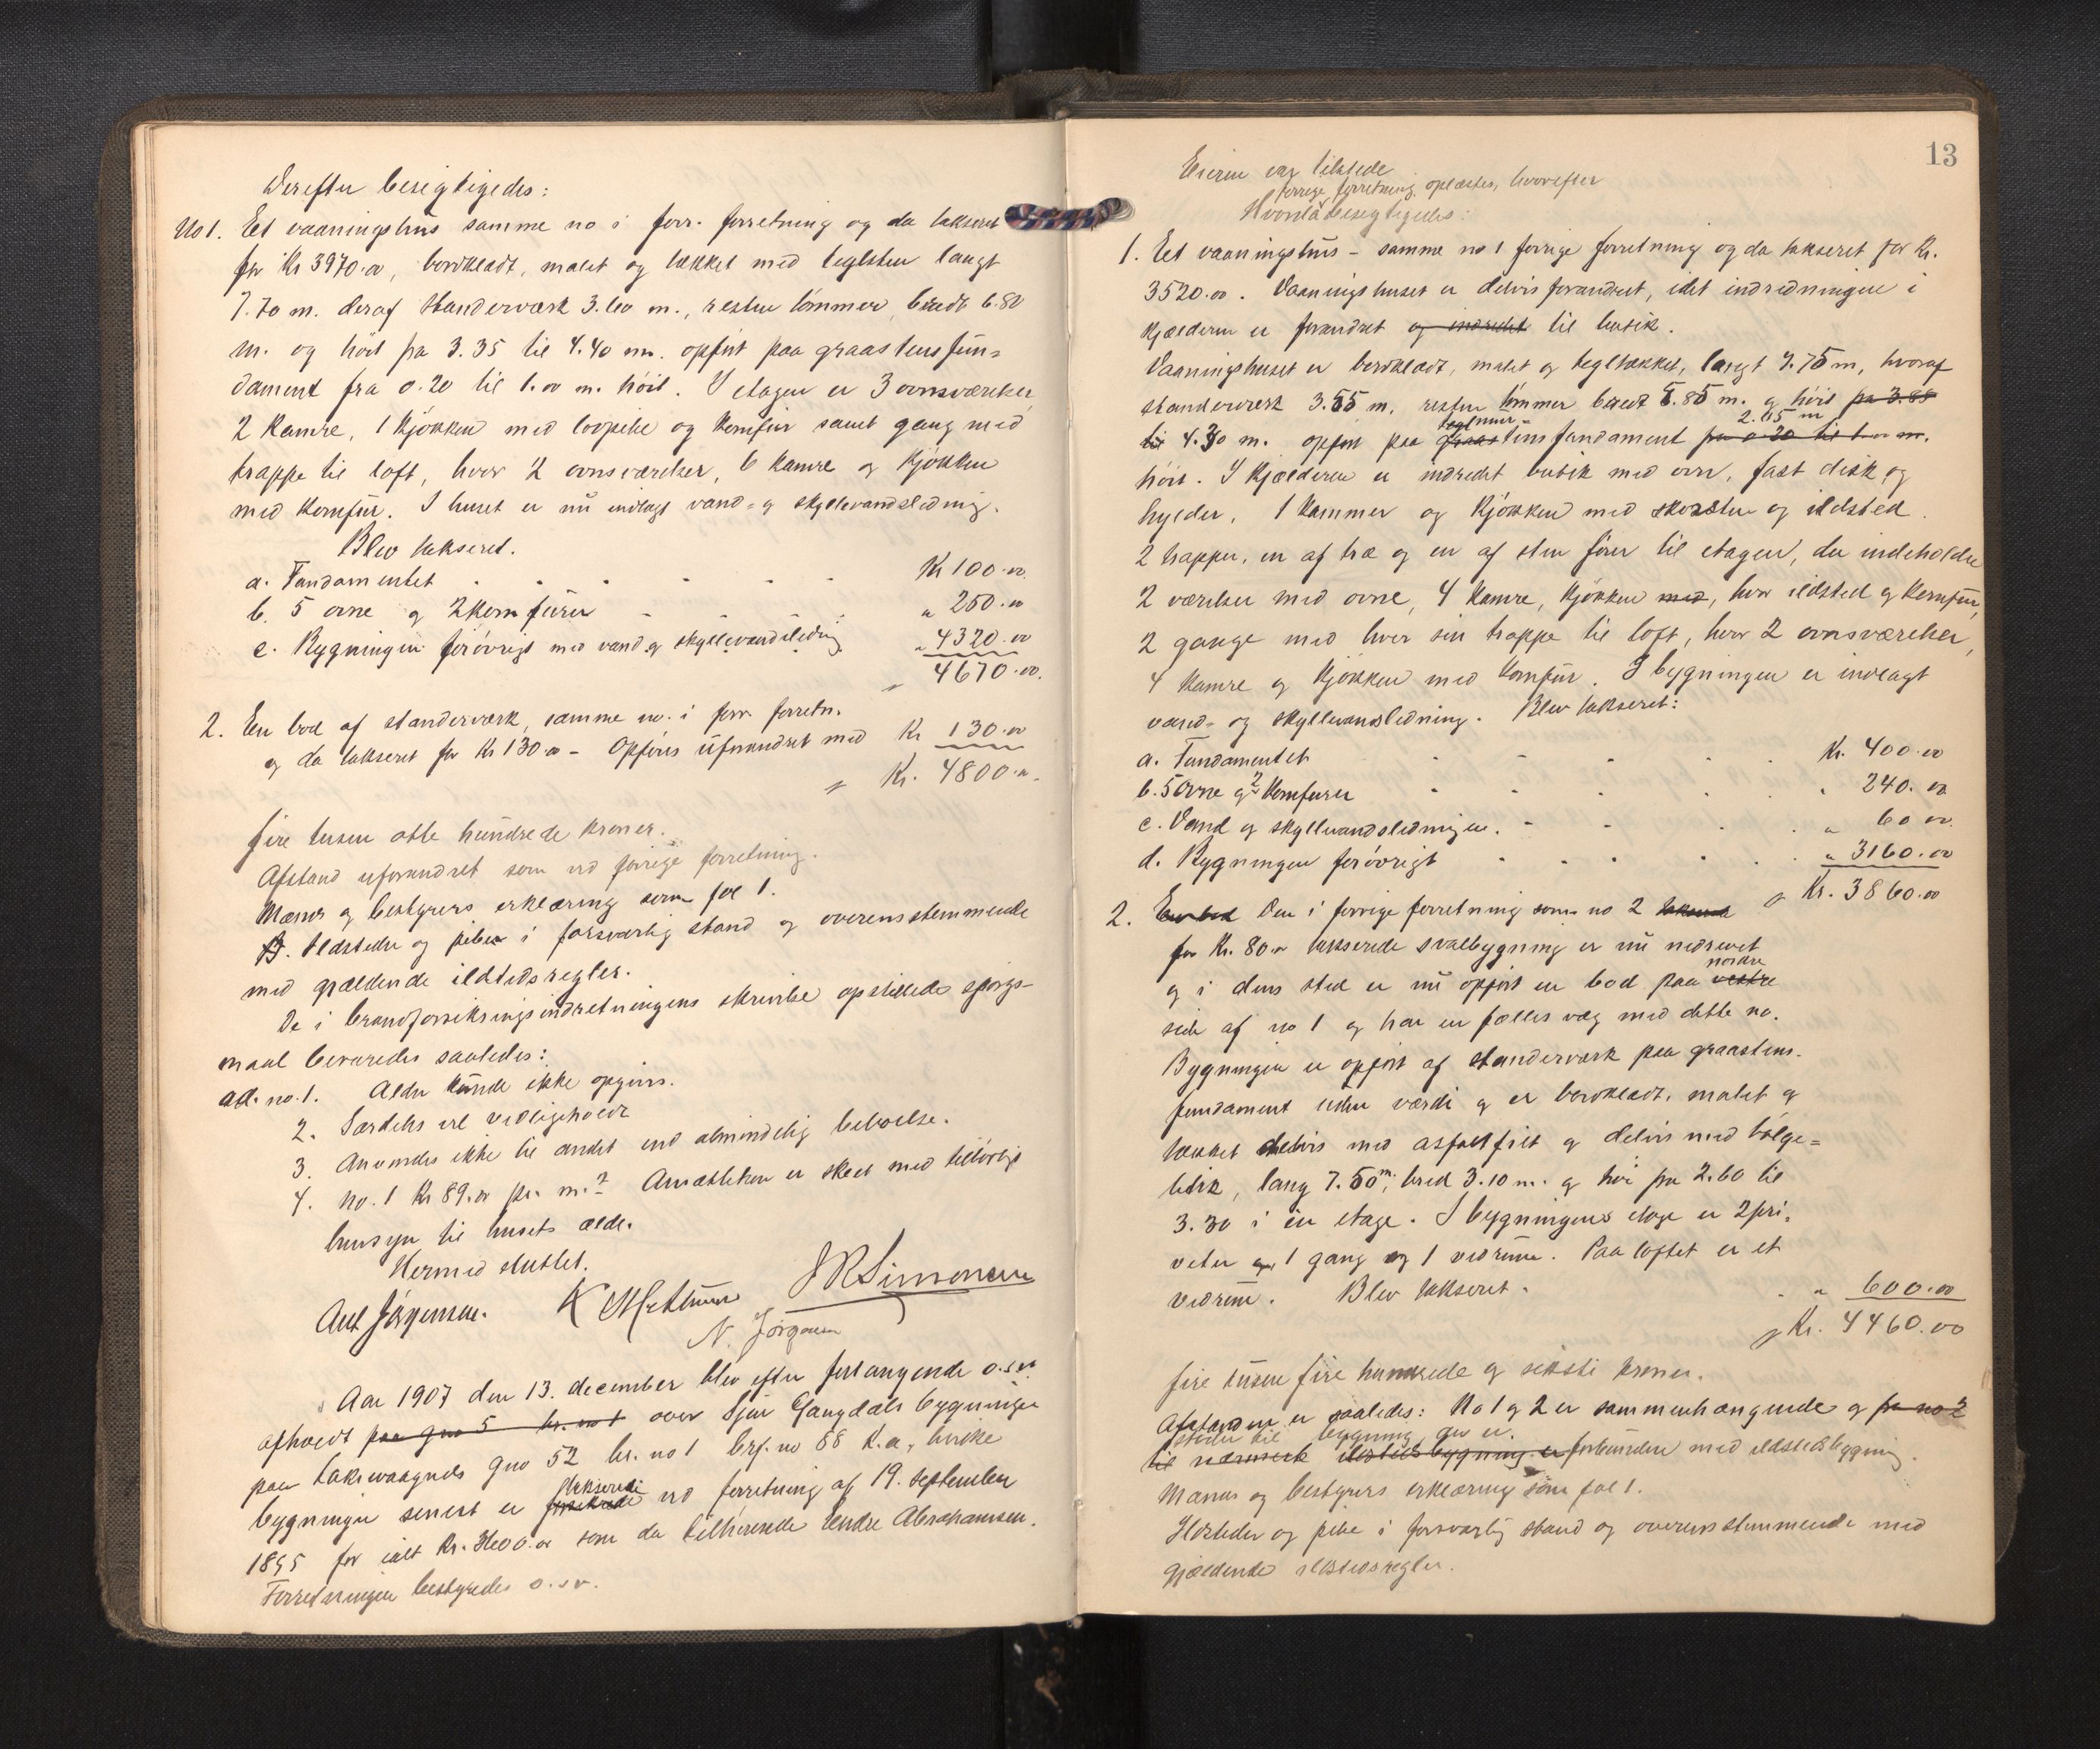 Derefter besigtigedes:
No 1. Eet vaaningshus samme no i forr. forretning og da takseret
for Kr 3970.00, bordklædt, malet og tækket med teglsten langt
7.70 m. deraf standerværk 3.60 m., resten tømmer, bredt 6.80
m. og høit fra 3.35 til 4.40 m. opført paa graastensfun-
dament fra 0.20 til 1.00 m. høit. I etagen er 3 ovnsværelser
2 kamre, 1 kjøkken med loopibe og komfur samt gang med
trappe til loft, hvor 2 ovnsværelser, 6 kamre og kjøkken
med komfur. I huset er nu indlagt vand- og skyllevandsledning.
Blev takseret.
a. Fundamentet - - - - - - Kr 100.00
b. 5 ovne og 2 komfurer - - - " 250.00
c. Bygningen forøvrigt med vand og skyllevandsledning " 4320.00
4670.00.
2. En bod af standerværk, samme no. i forr. forretn.
og da takseret for Kr 130.00 - Opføres uforandret med Kr 130.00
Kr. 4800.00.
fire tusen otte hundrede kroner.
Afstand uforandret som ved forrige forretning.
Mænds og bestyrers erklæring som fol 1.
Ildsteder og piber i forsvarlig stand og overensstemmende
med gjældende ildstedsregler.
De i brandforsikringsindretningens skrivelse opstillede spörgs-
maal besvaredes saaledes:
ad. no. 1. Alder kunde ikke opgives.
2. Særdeles vel vedligeholdt
3. Anvendes ikke til andet end almindelig beboelse.
4. no. 1 Kr 89.00 pr. m.2 Ansættelsen er skeet med tilbørligt
hensyn til husets ælde.
Hermed sluttet.
Ant Jörgensen. J R Simonsen
N. Jörgensen
Aar 1907 den 13. december blev efter forlangende o.s.v.
afholdt paa gno 5 br. no 1 over Sjur Gangdals bygninger
paa Laksevaagnæs gno 52 br. no 1 brf. no 88 L.a, hvilke
bygninger senest er takserede ved forretning af 19. september
1895 for ialt Kr. 3600.00 som da tilhørende Endre Abrahamsen.
Forretningen bestyredes o.s.v.
13
Eieren var tilstede
forrige forretning oplæstes, hvorefter
besigtigedes:
1. Eet vaaningshus - samme no i forrige forretning og da takseret for Kr.
3520.00. Vaaningshuset er delvis forandret, idet indredningen i
kjælderen er forandret og indredet til butik.
Vaaningshuset er bordklædt, malet og tegltækket, langt 9.75 m, hvoraf
standerværk 3.55 m, resten tømmer bredt 6.85 m. og höit fra 3.85
til 4.30 m. opført paa graastensfundament fra 0.20 til 1.00 m. 2.05 m
høit. I kjælderen er indredet butik med ovn, fast disk og
hylder, 1 kammer og kjøkken med skorsten og ildsted.
2 trapper, en af træ og en af sten fører til etagen, der indeholder
2 værelser med ovne, 4 kamre, kjøkken med, hvor ildsted og komfur,
2 gange med hver sin trappe til loft, hvor 2 ovnsværelser,
4 kamre og kjøkken med komfur. I bygningen er indlagt
vand- og skyllevandsledning. Blev takseret:
a. Fundamentet - - - - Kr. 400.00
b. 5 ovne og 2 komfurer - - - - " 240.00
c. Vand og skyllevandsledningen. - - - " 60.00
d. Bygningen forøvrigt - - - - " 3160.00
Kr. 3860.00
2. En bod Den i forrige forretning som no 2
for Kr. 80.00 takserede svalbygning er nu nedrevet
og i dens sted er nu opført en bod paa vestre nordre
side af no 1 og har en fælles væg med dette no.
Bygningen er opført af standerværk paa graastens-
fundament uden værdi og er bordklædt, malet og
tækket delvis med asfaltfilt og delvis med bølge-
blik, lang 7.50 m, bred 3.10 m. og høi fra 2.60 til
3.30 i en etage. I bygningens etage er 2 pri-
veter og 1 gang og 1 vedrum. Paa loftet er et
vedrum. Blev takseret. - " 600.00
Kr. 4460.00
fire tusen fire hundrede og seksti kroner.
Afstanden er saaledes: No 1 og 2 er sammenhængende og fra no 2
til nærmeste ildstedsbygning er forbunden med ildstedsbygning.
Mænds og bestyrers erklæring som fol 1.
Ildsteder og pibe i forsvarlig stand og overensstemmende med
gjældende ildstedsregler.